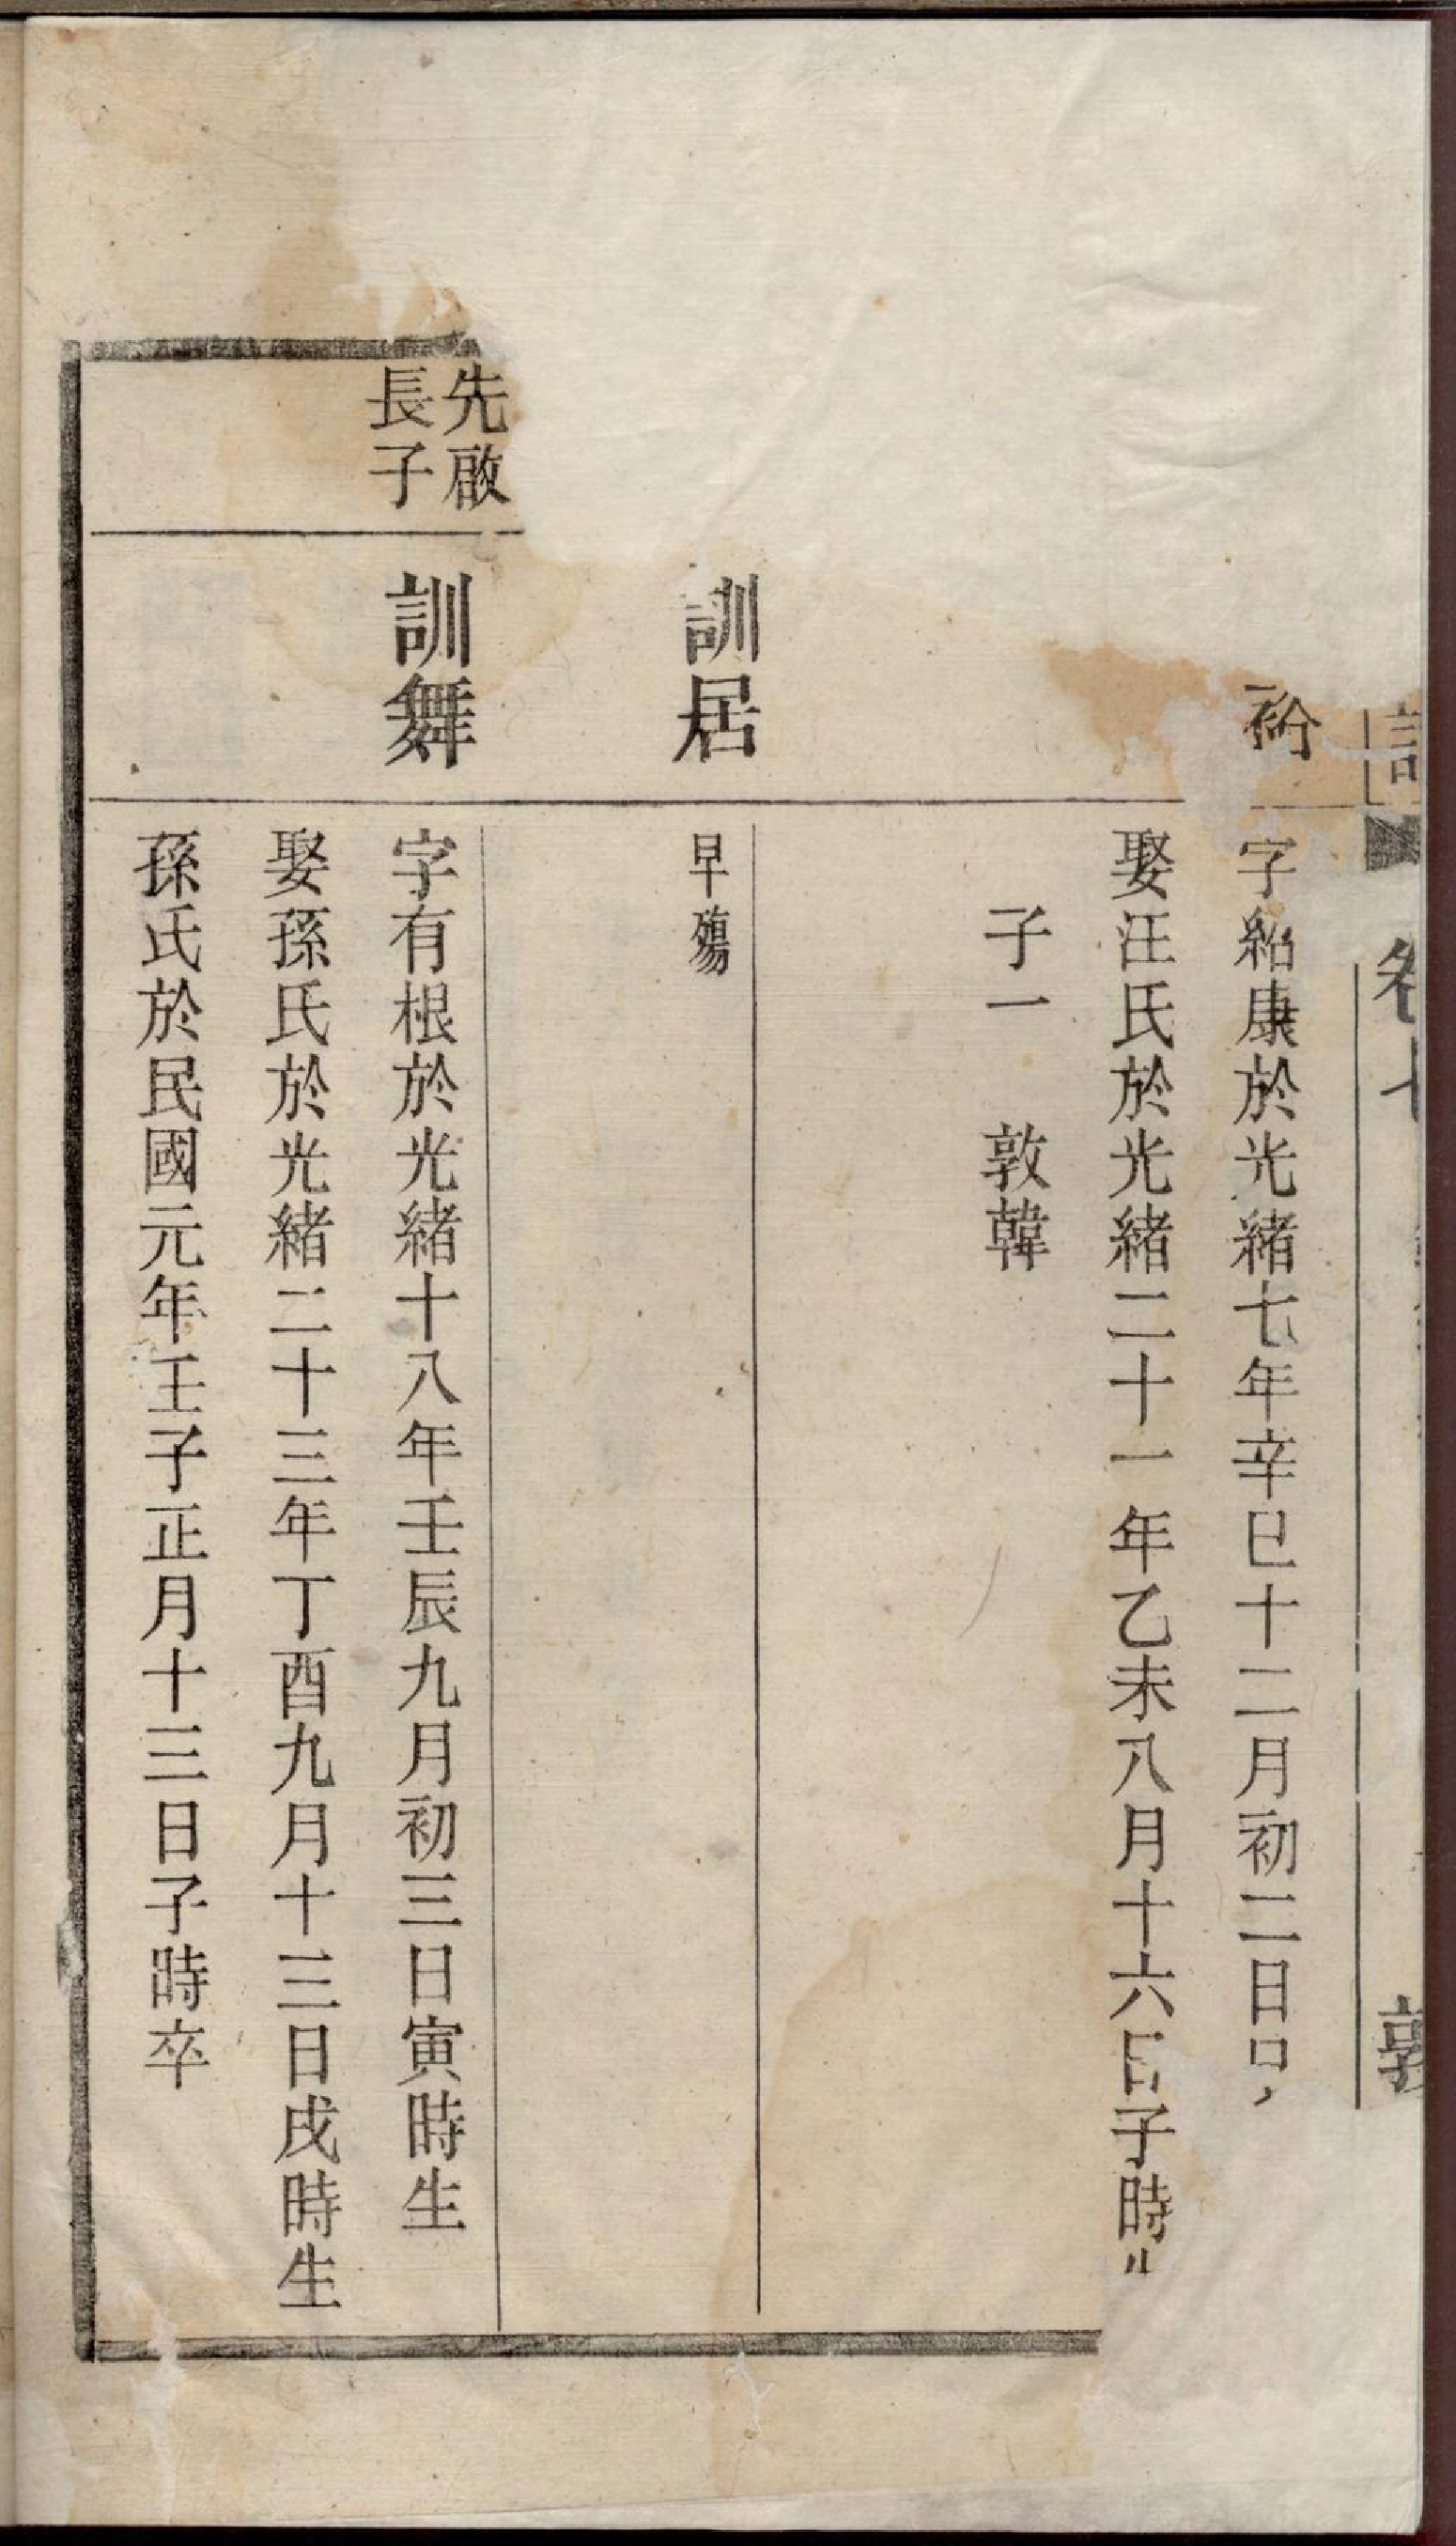 卷
字紹康於光緒七年辛巳十二月初二日
娶汪氏於光緒二十一年乙未八月十六日子時
子一 敦韓
訓居
早殤
先啟
長子
訓舞
字有根於光緒十八年壬辰九月初三日寅時生
娶孫氏於光緒二十三年丁酉九月十三日戌時生
孫氏於民國元年壬子正月十三日子時卒